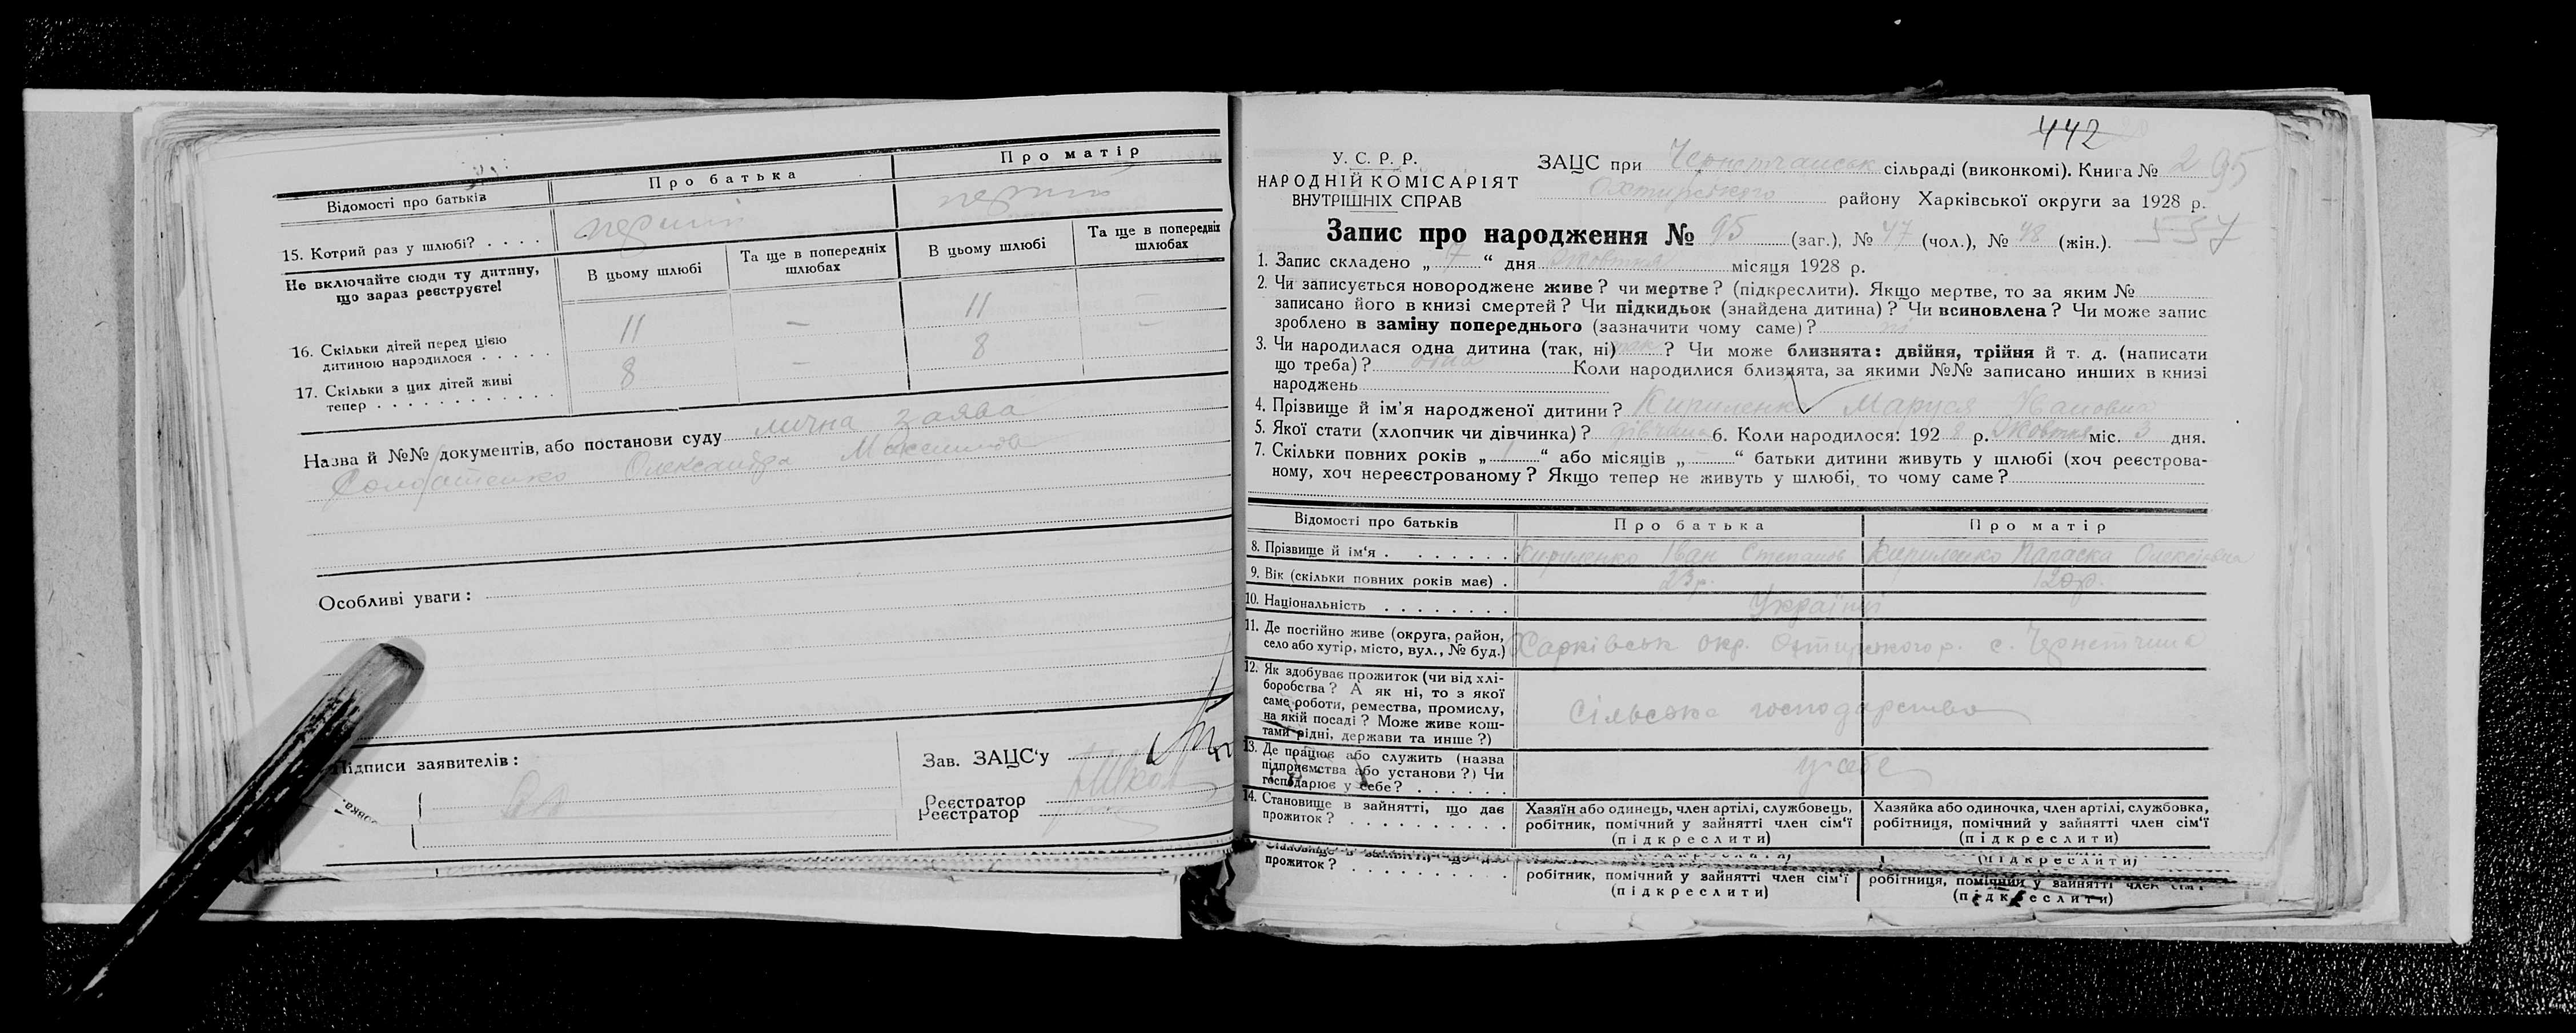 Відомості про батьків
Про батька
Про матір
15. Котрий раз у шлюбі? . . . .
перший
перший
Не включайте сюди ту дитину,
що зараз реєструєте!
В цьому шлюбі
Та ще в попередніх
шлюбах
В цьому шлюбі
Та ще в попередніх
шлюбах
16. Скільки дітей перед цією
дитиною народилося . . . . .
11
—
11
—
17. Скільки з цих дітей живі
тепер . . . . . . . . . . . .
8
—
8
—
Назва й №№ документів, або постанови суду лична заява
Солодатенко Олександра
Особливі уваги:
Підписи заявителів:
Зав. ЗАЦС'у
Реєстратор
Реєстратор
442
У. С. Р. Р.
НАРОДНІЙ КОМІСАРІЯТ
ВНУТРІШНІХ СПРАВ
ЗАЦС при Чернетчанськ сільраді (виконкомі). Книга № 2 95
Охтирського району Харківської округи за 1928 р.
Запис про народження № 95 (заг.), № 47 (чол.), № 48 (жін.). 537
1. Запис складено „ 7 “ дня Жовтня місяця 1928 р.
2. Чи записується новороджене живе? чи мертве? (підкреслити). Якщо мертве, то за яким №
записано його в книзі смертей? Чи підкидьок (знайдена дитина)? Чи всиновлена? Чи може запис
зроблено в заміну попереднього (зазначити чому саме)? ні
3. Чи народилася одна дитина (так, ні) так ? Чи може близнята: двійня, трійня й т. д. (написати
що треба)? одна Коли народилися близнята, за якими №№ записано инших в книзі
народжень
4. Прізвище й ім'я народженої дитини? Кириленко Маруся Івановна
5. Якої стати (хлопчик чи дівчинка)? дівчина 6. Коли народилося: 192 8 р. Жовтня міс. 3 дня.
7. Скільки повних років „ 1 “ або місяців „ “ батьки дитини живуть у шлюбі (хоч реєстрова-
ному, хоч нереєстрованому? Якщо тепер не живуть у шлюбі, то чому саме?
Відомості про батьків
Про батька
Про матір
8. Прізвище й ім'я . . . . . . .
Кириленко Іван Степанов
Кириленко Олексієвна
9. Вік (скільки повних років має) .
23 р.
20 р.
10. Національність . . . . . . . .
Українці
11. Де постійно живе (округа, район,
село або хутір, місто, вул., № буд.)
Харківськ окр. Охтирського р. с. Чернетчина
12. Як здобуває прожиток (чи від хлі-
боробства? А як ні, то з якої
саме роботи, ремества, промислу,
на якій посаді? Може живе кош-
тами рідні, держави та инше?)
Сільське господарство
13. Де працює або служить (назва
підприємства або установи?) Чи
господарює у себе? . . . . . .
у себе
14. Становище в зайнятті, що дає
прожиток? . . . . . . . . . .
Хазяїн або одинець, член артілі, службовець,
робітник, помічний у зайнятті член сім'ї
(підкреслити)
Хазяйка або одиночка, член артілі, службовка,
робітниця, помічний у зайнятті член сім'ї
(підкреслити)
(підкреслити)
прожиток? . . . . . . . . . .
робітник, помічний у зайнятті член сім'ї
(підкреслити)
робітниця, помічний у зайнятті член сім'ї
(підкреслити)